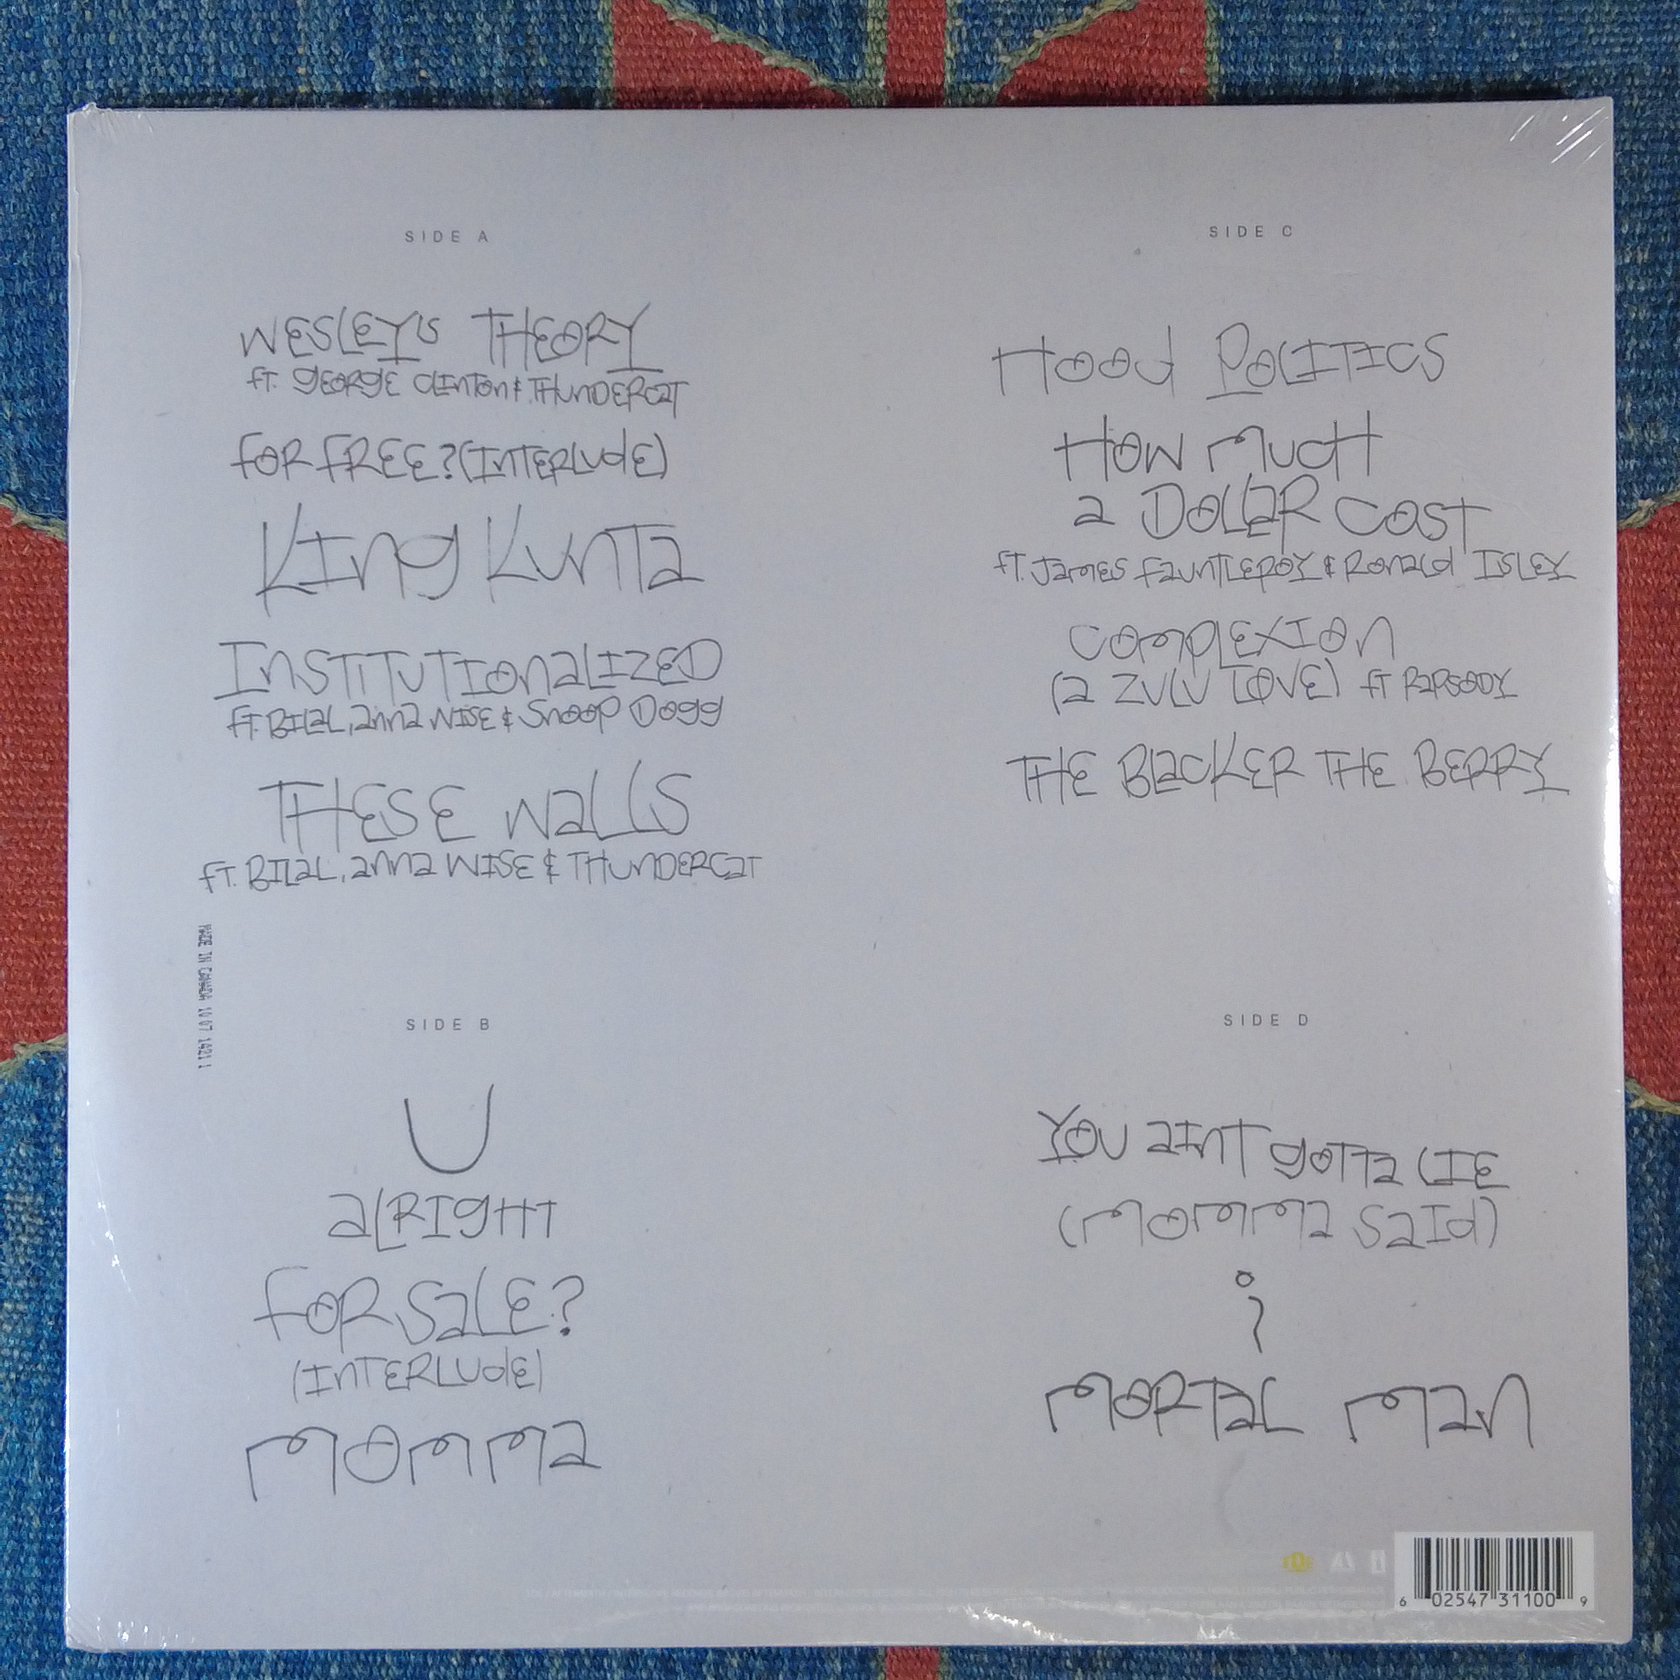 SIDE A
WESLEY's THEORY
fT. gEORgE CLINTON & THUNDERCaT
fOR fREE? (INTERLUdE)
KINg KUNTa
INSTITUTIONaLIZED
fT. BILaL, aNNa WISE & SNOOP DOgg
THESE WaLLS
fT. BILaL, aNNa WISE & THUNDERCaT
MADE IN CANADA
SIDE B
U
aLRIgHT
fOR SaLE?
(INTERLUdE)
mOmma
SIDE C
HOOd POLITICS
HOW mUCH
a DOLLaR COST
fT. JamES faUNTLEROY & RONaLd ISLEY
COmPLEXION
(a ZULU LOVE) fT RaPSODY
THE BLaCKER THE BERRY
SIDE D
YOU aINT gOTTa LIE
(mOmma SaId)
i
mORTaL maN
6 02547 31100 9